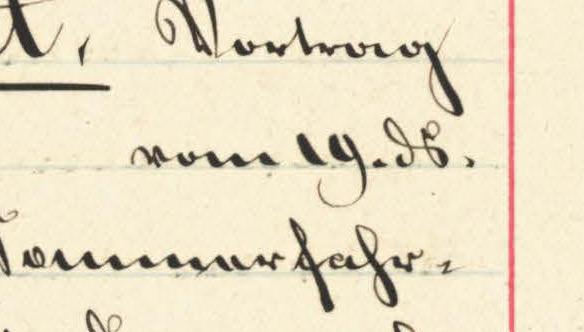 t. Vortrag
vom 19. ds.
Sommerfahr-